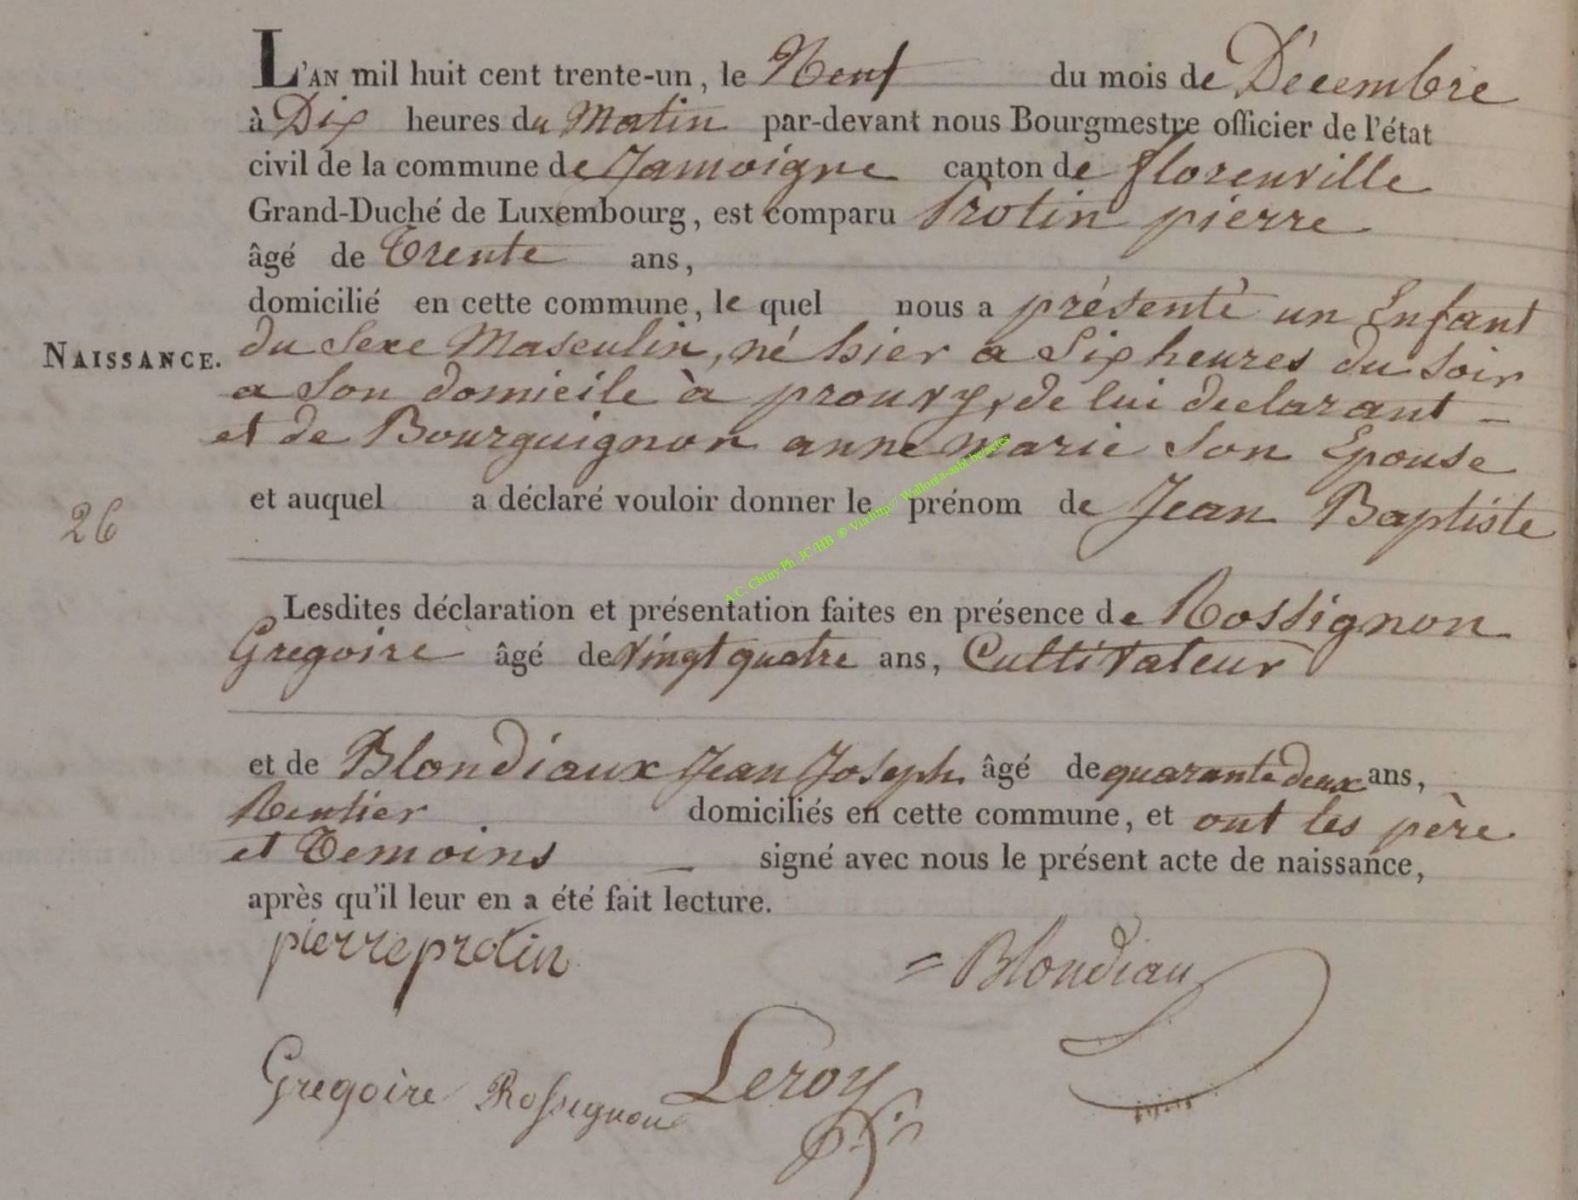 L'AN mil huit cent trente-un, le Neuf du mois de Décembre
à Dix heures du Matin par-devant nous Bourgmestre officier de l'état
civil de la commune de Jamoigne canton de florenville
Grand-Duché de Luxembourg, est comparu Protin pierre
âgé de Trente ans,
domicilié en cette commune, le quel nous a présenté un Enfant
NAISSANCE. du Sexe Masculin, né hier a Six heures du Soir
a Son domicile à prouvy, de lui declarant —
et de Bourguignon anne marie Son Epouse
et auquel a déclaré vouloir donner le prénom de Jean Baptiste
26
A.C. Chiny, Ph. JC/HB ® Via http:// Wallonia-asbl.be/actes
Lesdites déclaration et présentation faites en présence de Rossignon
Gregoire âgé de Vingt quatre ans, Cultivateur
et de Blondiaux Jean Joseph âgé de quarante deux ans,
Rentier domiciliés en cette commune, et ont les père
et Temoins — signé avec nous le présent acte de naissance,
après qu'il leur en a été fait lecture.
pierre protin = Blondiau
Gregoire Rossignon Leroy